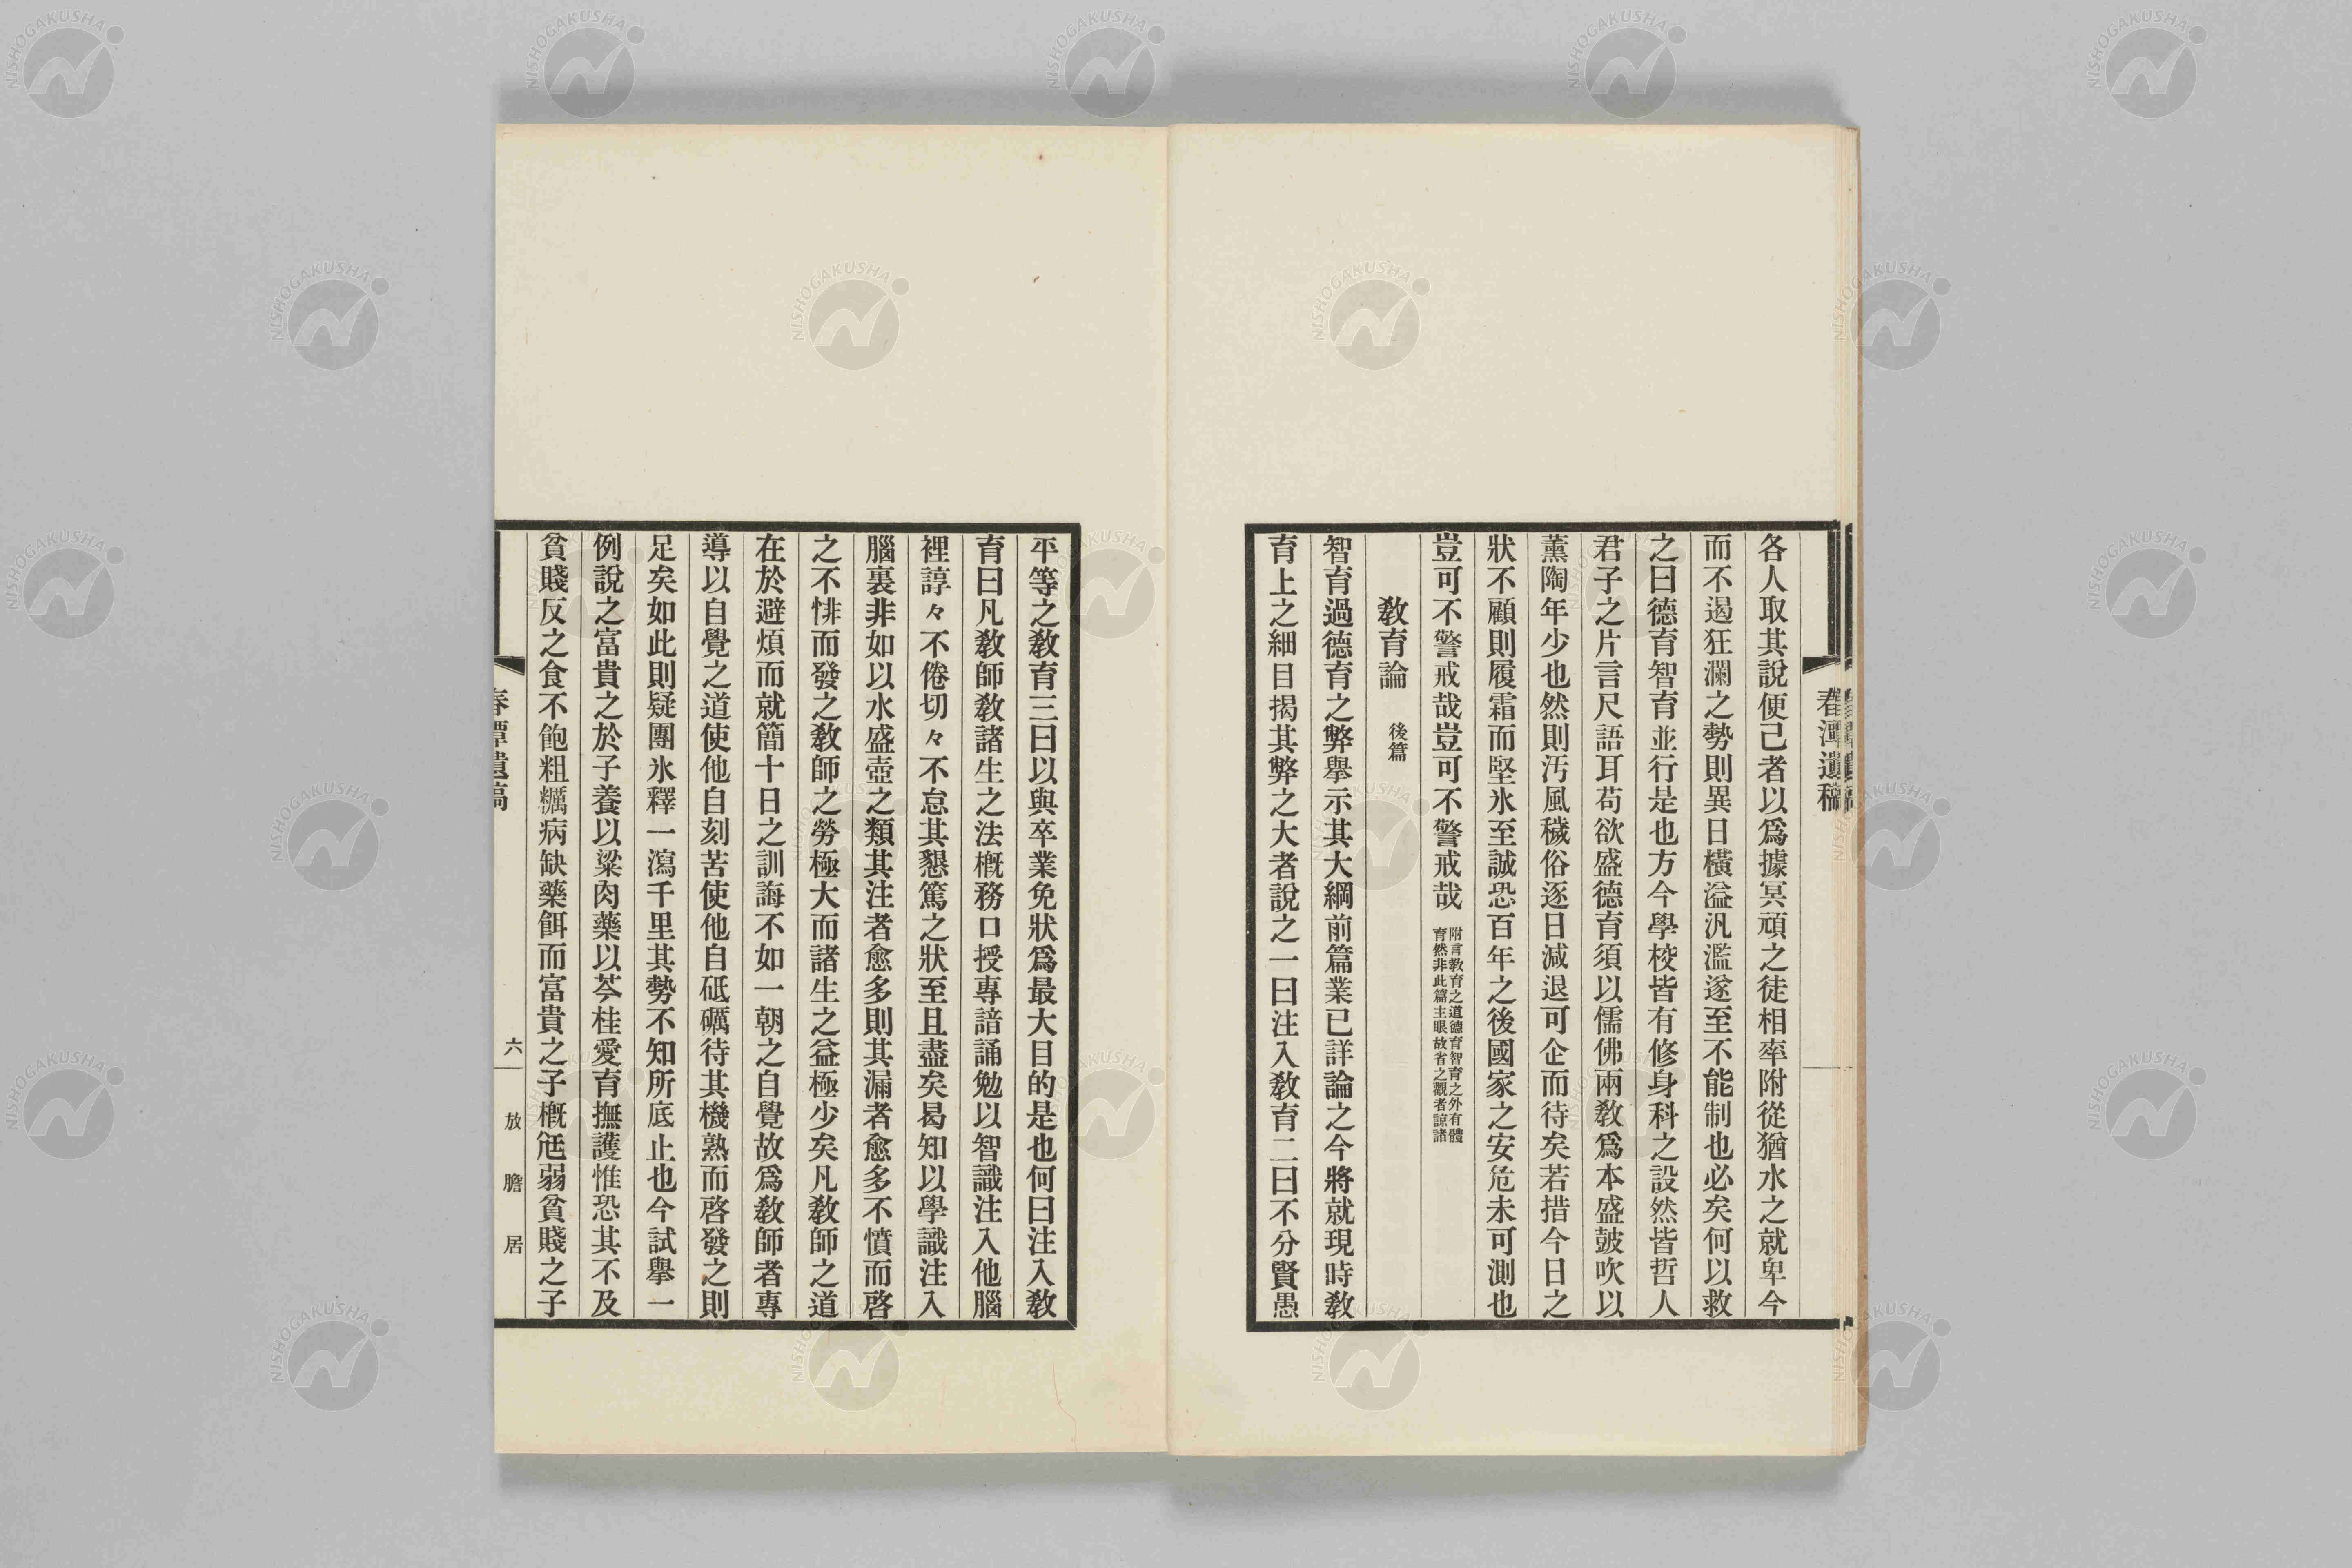 春潭遺稿
各人取其說便己者以爲據冥頑之徒相率附從猶水之就卑今
而不遏狂瀾之勢則異日橫溢汎濫遂至不能制也必矣何以救
之曰德育智育並行是也方今學校皆有修身科之設然皆哲人
君子之片言尺語耳苟欲盛德育須以儒佛兩敎爲本盛皷吹以
薰陶年少也然則汚風穢俗逐日減退可企而待矣若措今日之
狀不顧則履霜而堅氷至誠恐百年之後國家之安危未可測也
豈可不警戒哉豈可不警戒哉
附言敎育之道德育智育之外有體
育然非此篇主眼故省之觀者諒諸
敎育論 後篇
智育過德育之弊擧示其大綱前篇業已詳論之今將就現時敎
育上之細目揭其弊之大者說之一曰注入敎育二曰不分賢愚
平等之敎育三曰以與卒業免狀爲最大目的是也何曰注入敎
育曰凡敎師敎諸生之法槪務口授專諳誦勉以智識注入他腦
裡諄々不倦切々不怠其懇篤之狀至且盡矣曷知以學識注入
腦裏非如以水盛壺之類其注者愈多則其漏者愈多不憤而啓
之不悱而發之敎師之勞極大而諸生之益極少矣凡敎師之道
在於避煩而就簡十日之訓誨不如一朝之自覺故爲敎師者專
導以自覺之道使他自刻苦使他自砥礪待其機熟而啓發之則
足矣如此則疑團氷釋一瀉千里其勢不知所底止也今試擧一
例說之富貴之於子養以粱肉藥以芩桂愛育撫護惟恐其不及
貧賤反之食不飽粗糲病缺藥餌而富貴之子槪尫弱貧賤之子
春潭遺稿
六
放膽居
NISHOGAKUSHA